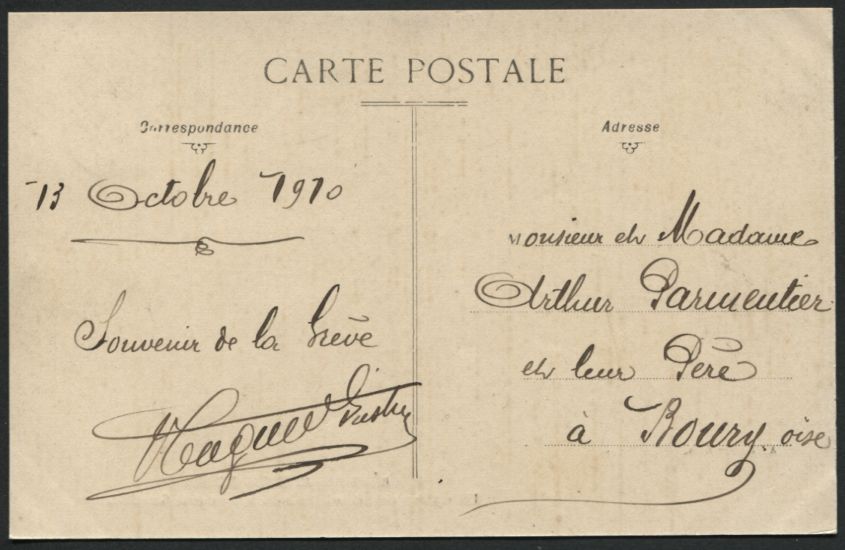 CARTE POSTALE
Correspondance
Adresse
13 Octobre 1910
Souvenir de la Grève
Monsieur et Madame
Arthur Parmentier
et leur Père
à Boury oise